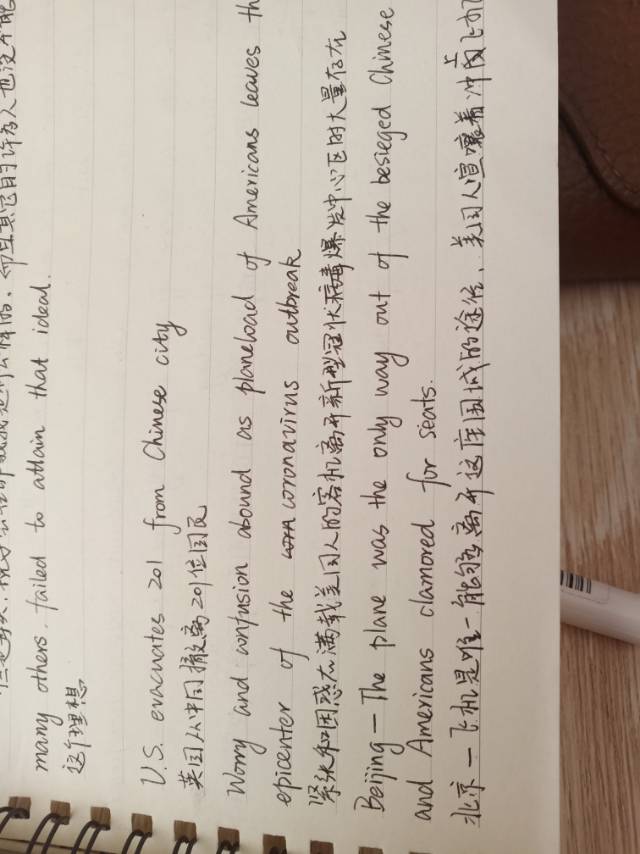 many others failed to attain that ideal.
这个理想
U.S. evacuates 201 from Chinese city
美国从中国撤离201位国民
Worry and confusion abound as planeload of Americans leaves th
epicenter of the coronavirus outbreak
紧张和困惑在满载美国人的客机离开新型冠状病毒爆发中心区时大量存在
Beijing — The plane was the only way out of the besieged Chinese
and Americans clamored for seats.
北京一飞机是唯一能够离开这座围城的途径、美国人喧嚷着冲上飞机